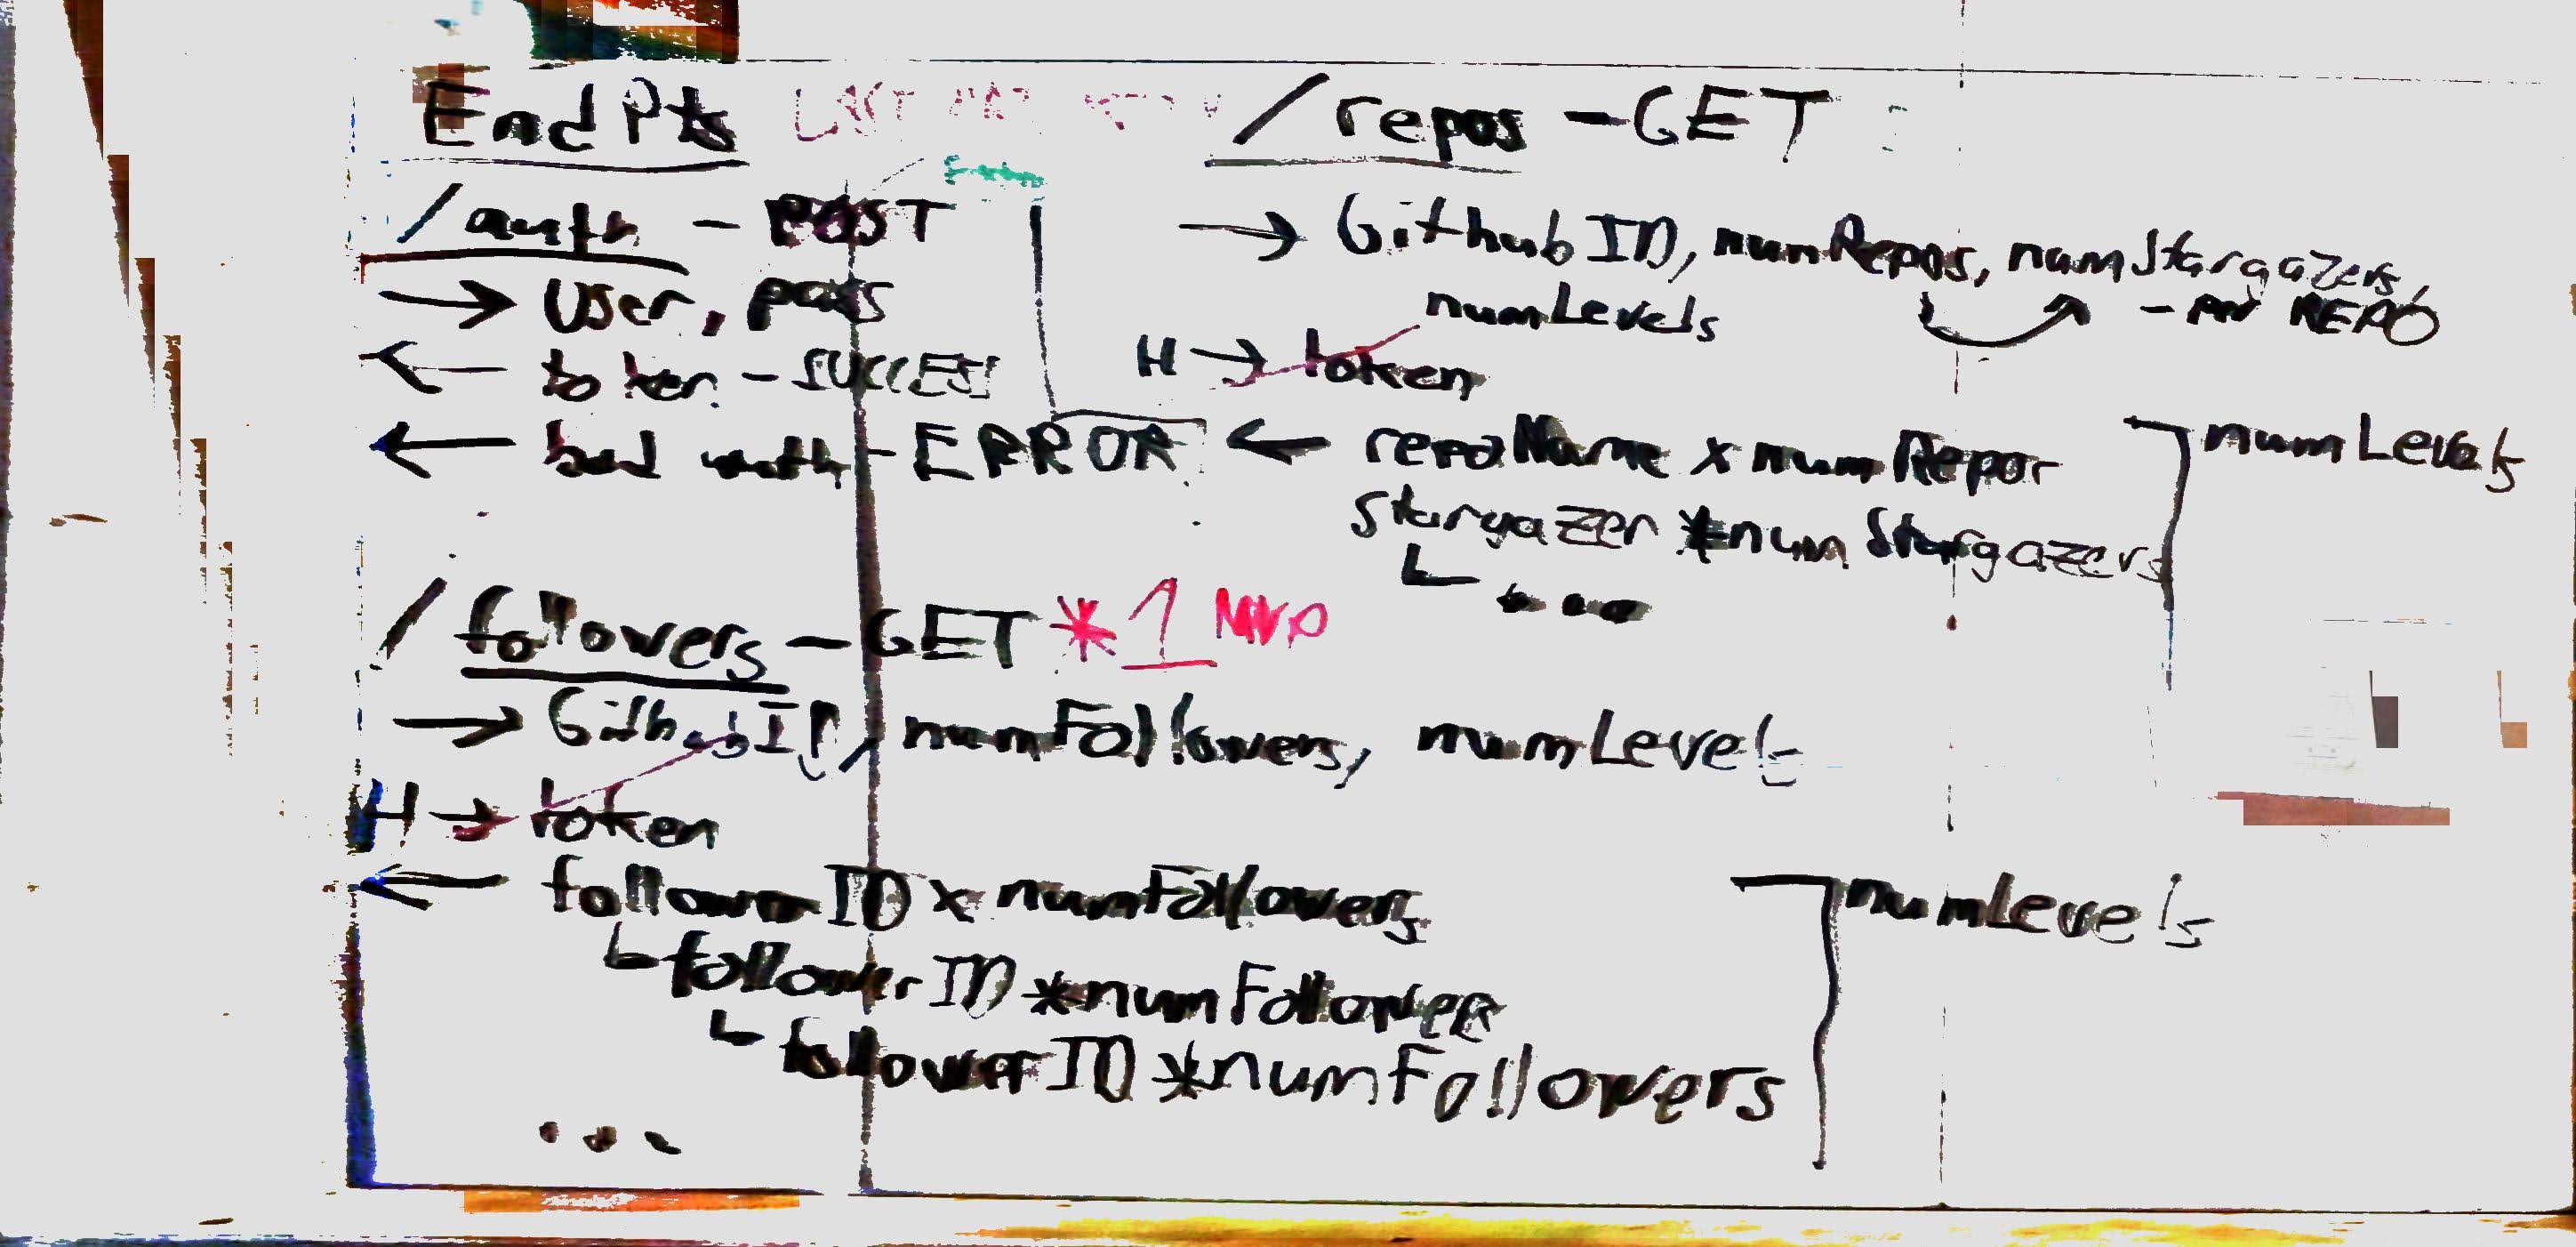 EndPts
/auth - POST
→ User, pass
← token - SUCCESS
← bad auth - ERROR
/followers - GET *1 MVP
→ GithubID, numFollowers, numLevels
H → token
← followerID x numFollowers
followerID *numFollowers
followerID *numFollowers
...
numLevels
/repos - GET
→ GithubID, numRepos, numStargazers,
numLevels
- per REPO
H → token
← repoName x numRepos
stargazer *numStargazers
...
numLevels